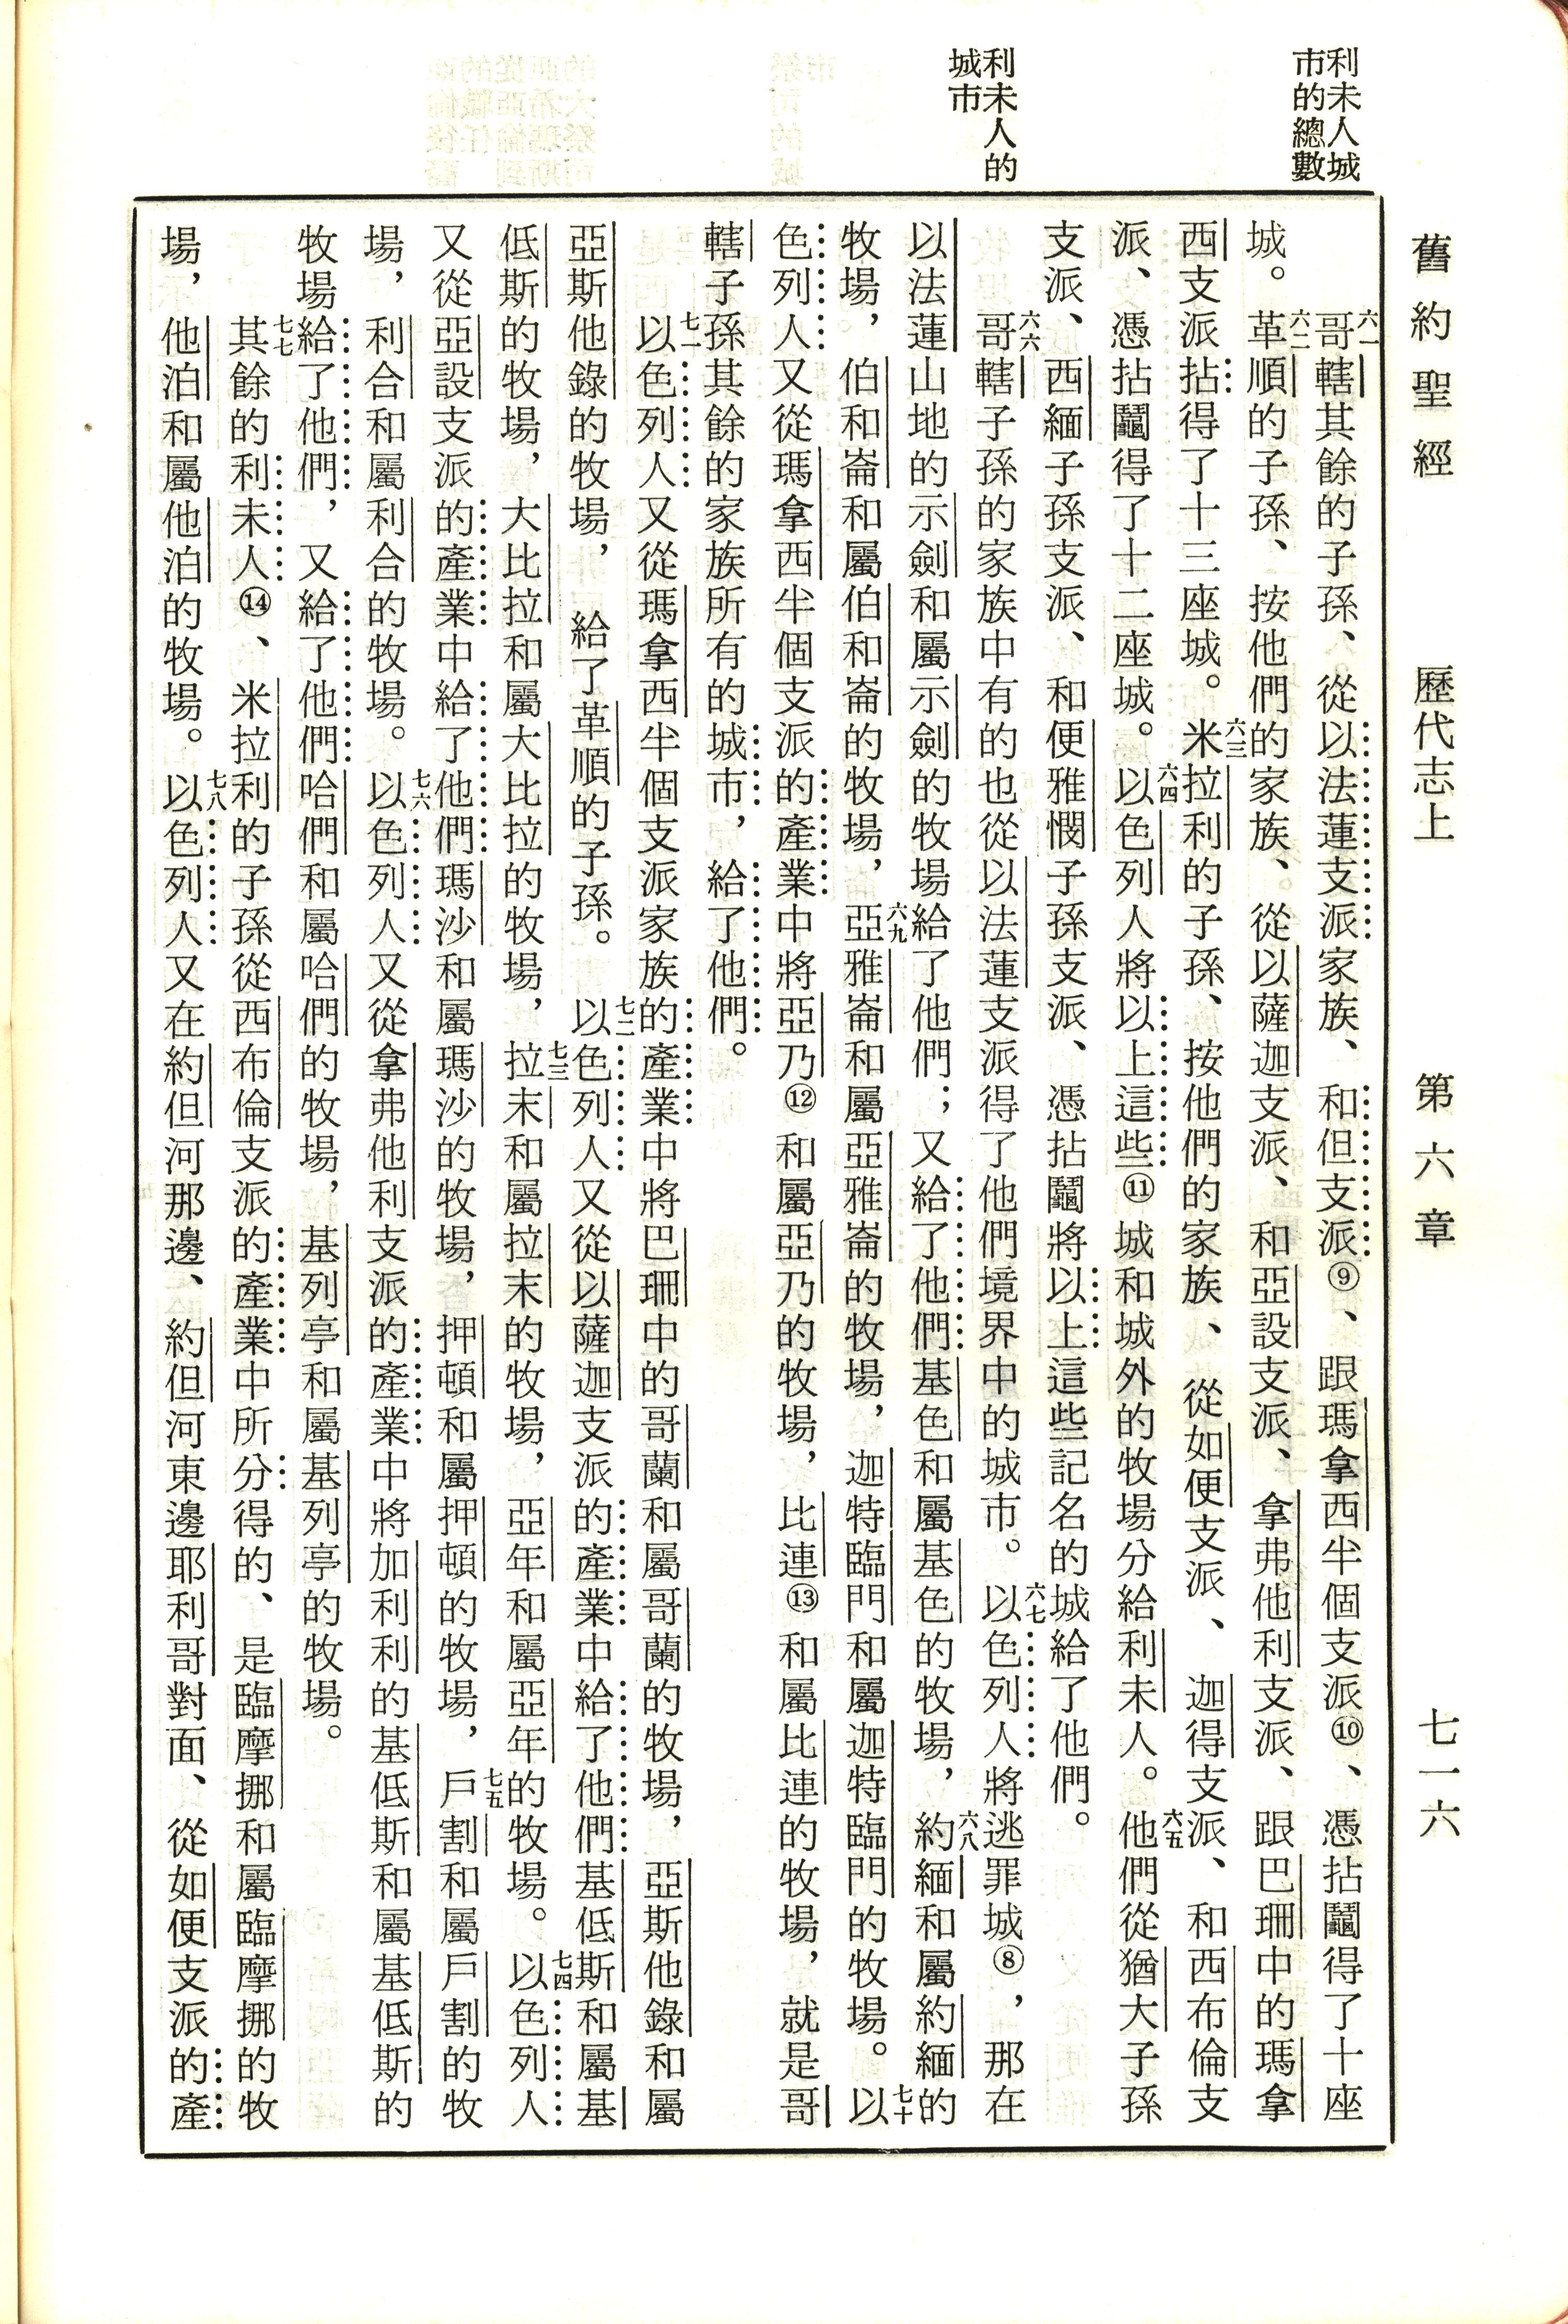 舊約聖經　歷代志上　第六章　七一六
利未人城
市的總數
利未人的
城市
六一哥轄其餘的子孫、從以法蓮支派家族、和但支派⑨、跟瑪拿西半個支派⑩、憑拈鬮得了十座
城。六二革順的子孫、按他們的家族、從以薩迦支派、和亞設支派、拿弗他利支派、跟巴珊中的瑪拿
西支派拈得了十三座城。六三米拉利的子孫、按他們的家族、從如便支派、迦得支派、和西布倫支
派、憑拈鬮得了十二座城。六四以色列人將以上這些⑪城和城外的牧場分給利未人。六五他們從猶大子孫
支派、西緬子孫支派、和便雅憫子孫支派、憑拈鬮將以上這些記名的城給了他們。
六六哥轄子孫的家族中有的也從以法蓮支派得了他們境界中的城市。六七以色列人將逃罪城⑧，那在
以法蓮山地的示劍和屬示劍的牧場給了他們；又給了他們基色和屬基色的牧場，六八約緬和屬約緬的
牧場，伯和崙和屬伯和崙的牧場，六九亞雅崙和屬亞雅崙的牧場，迦特臨門和屬迦特臨門的牧場。七十以
色列人又從瑪拿西半個支派的產業中將亞乃⑫和屬亞乃的牧場，比連⑬和屬比連的牧場，就是哥
轄子孫其餘的家族所有的城市，給了他們。
七一以色列人又從瑪拿西半個支派家族的產業中將巴珊中的哥蘭和屬哥蘭的牧場，亞斯他錄和屬
亞斯他錄的牧場，給了革順的子孫。七二以色列人又從以薩迦支派的產業中給了他們基低斯和屬基
低斯的牧場，大比拉和屬大比拉的牧場，七三拉末和屬拉末的牧場，亞年和屬亞年的牧場。七四以色列人
又從亞設支派的產業中給了他們瑪沙和屬瑪沙的牧場，押頓和屬押頓的牧場，七五戶割和屬戶割的牧
場，利合和屬利合的牧場。七六以色列人又從拿弗他利支派的產業中將加利利的基低斯和屬基低斯的
牧場給了他們，又給了他們哈們和屬哈們的牧場，基列亭和屬基列亭的牧場。
七七其餘的利未人⑭、米拉利的子孫從西布倫支派的產業中所分得的、是臨摩挪和屬臨摩挪的牧
場，他泊和屬他泊的牧場。七八以色列人又在約但河那邊、約但河東邊耶利哥對面、從如便支派的產